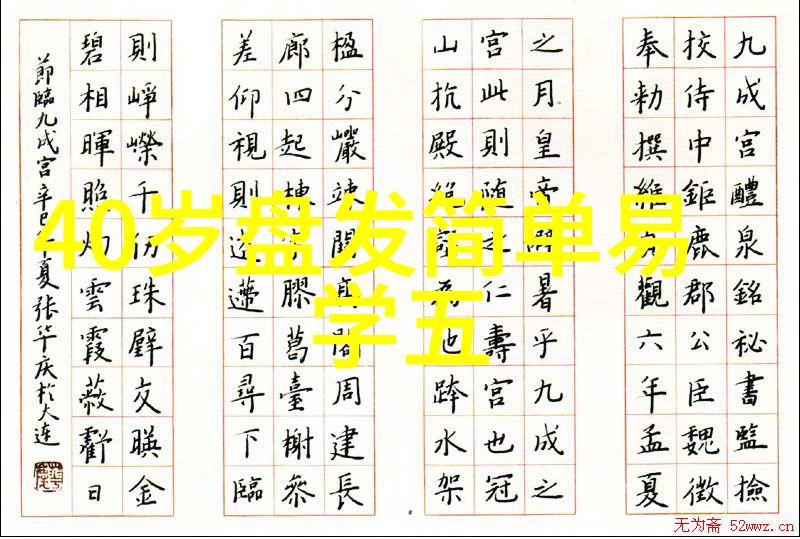 九成宫醴泉銘祕書監撿
挍侍中鉅鹿郡公臣魏徵
奉勅撰維貞觀六年孟夏
之月皇帝避暑乎九成之
宫此則随之仁壽宫也冠
山抗殿絶壑為池跨水架
楹分巖竦闕高閣周建長
廊四起棟宇膠葛臺榭參
差仰視則迢遰百尋下臨
則崢嶸千仞珠壁交暎金
碧相暉照灼雲霞蔽虧日
節臨九成宫辛巳夏張华庆於大连
40岁盘发简单易
学五
无为斋 52wwz.cn